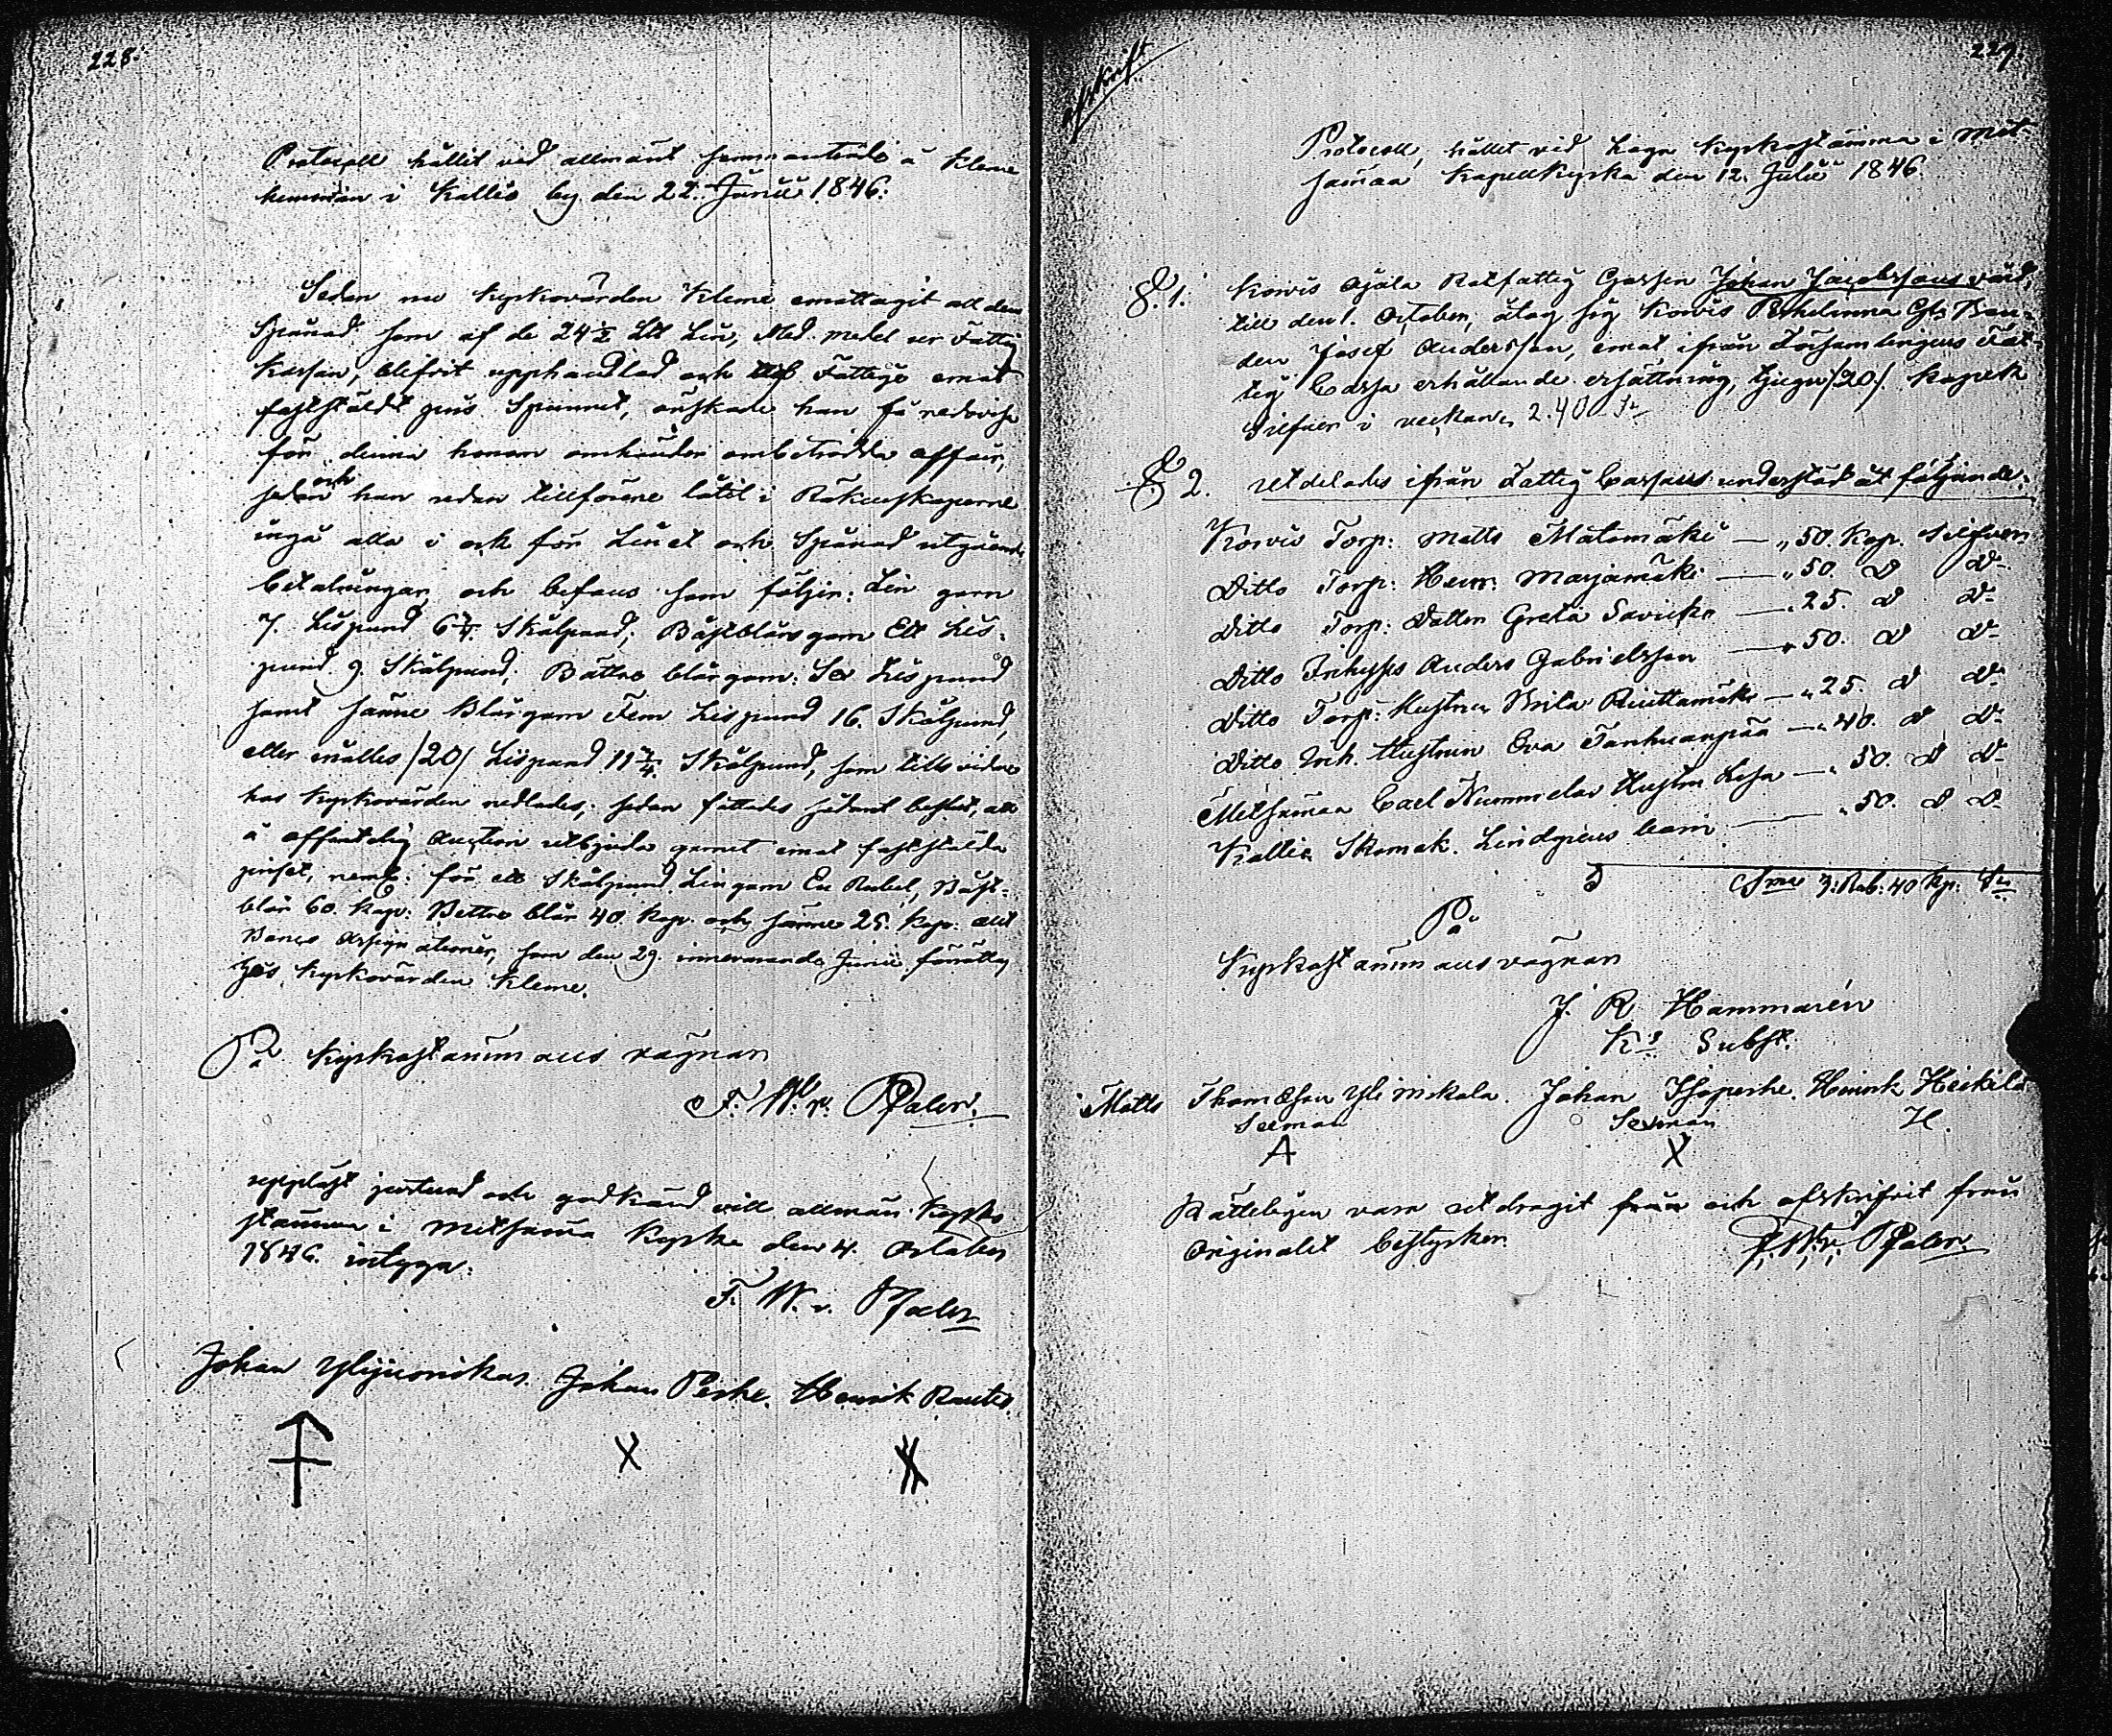 228.
Protocoll hållit vid allmänt sammanträde å Kleme
hemman i Kallio by den 22. Junii 1846.
Sedan nu Kyrkovärden Kleme emottagit all den
Spånad som af de 24½ L℔ Lin, Med medel ur Fattig
Kassan, blifvit upphandlad och till Fattige emot
faststäldt pris Spunnet, önskade han få redovisa
för denna honom omhänder ombetrodda affair,
sedan och han redan tillförene låtit i Räkenskaperne
ingå alla i och för Linet och Spånad utgående
betalningar, och befans som följer: Lin garn
7. Lispund 6¾ Skålpund; Bästblårs garn Ett Lis-
pund 9. Skålpund; Bättre blårgarn: Sex Lispund
samt sämre Blårgarn Fem Lispund 16. Skålpund,
eller inalles /20/ Lispund 11¾ Skålpund, som tills vidare
hos Kyrkovärden nedlades; sedan fattades sådant beslut, att
å offentelig Auction utbjuda garnet emot faststälda
priset, neml: för ett Skålpund Lingarn En Rubel, Bäst-
blår 60. Kop: Bettre blår 40 Kop. och sämre 25. Kop. allt
Banco Assignationer, som den 29. innevarande Junii förrättas
hos Kyrkovärden Kleme.
På Kyrkostämmans vägnar
F. W. v. Pfaler.
uppläst justerad och godkänd vid allmän Kyrko
stämma i Metsämaa Kyrka den 4. October
1846. intyga:
F. W. v. Pfaler
Johan Ylijuonikas. Johan Peske. Henrik Rautio.
X
229
Afskrift
Protocoll, hållet vid laga Kyrkostämma i Met-
sämaa Kapellkyrka den 12. Julii 1846.
§. 1. Koivis Ojala Rotfattig Gossen Johan Jacobssons vård,
till den 1. October, åtog sig Koivis Pehelinna Gts Bon-
den Josef Andersson, emot ifrån Församlingens Fat-
tig Cassa erhållande ersättning, tjugu /20/ Kopek
Silfver i veckan, 2.40 Sr
§ 2. Utdelades ifrån Fattig Cassans understöd åt följande:
Koivis Torp: Matts Mätämäki — „ 50. Kop. Silfver
Ditto Torp: Henr: Marjamäki — „ 50. D D-
Ditto Torp: Dottern Greta — „ 25. D D-
Ditto Inhyses Anders Gabrielsson — „ 50. D D-
Ditto Torp: Hustrun Brita — „ 25. D D-
Ditto Inh. Hustrun Eva Tanhuanpää — „ 40. D D-
Metsämaa Carl Nummelas Hustru Lisa — „ 50. D D-
Kallio Skomak. Lindgrens barn — „ 50. D D-
Sma 3: Rub: 40 Kp: Sr
På
Kyrkostämmans vägnar
J. R. Hammarén
Ks Subst.
Matts Thomasson Yli Nikola. Johan Isopeske. Henrik Heikilä
Sexman Sexman H.
A X
Rätteligen vara utdragit från och afskrifvit från
Originalet bestyrker
F. W. v. Pfaler.